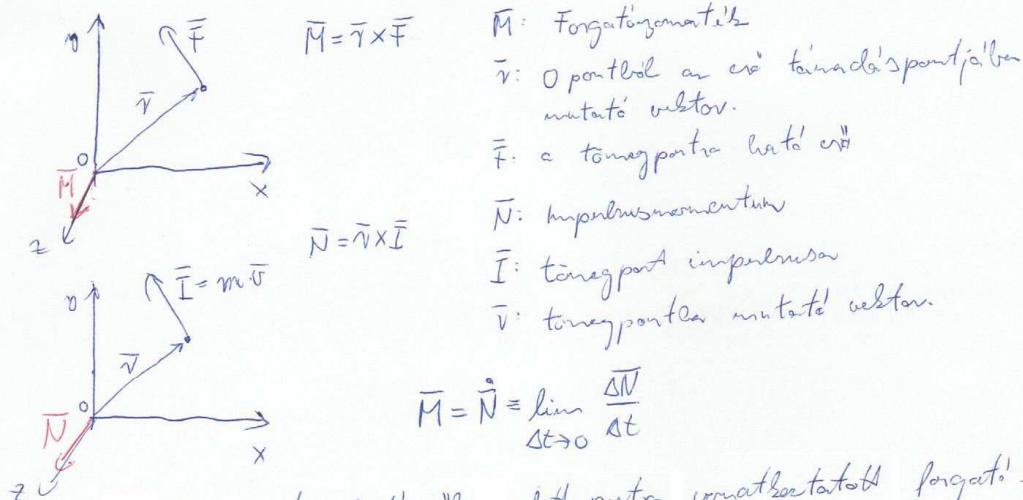 y
F̄
r̄
O
M̄
x
z
M̄ = r̄ × F̄
M̄: Forgatónyomaték
r̄: O pontból az erő támadáspontjában
mutató vektor.
F̄: a tömegpontra ható erő
N̄ = r̄ × Ī
N̄: Impulzusmomentum
Ī: tömegpont impulzusa
r̄: tömegpontba mutató vektor.
y
Ī = m·v̄
r̄
O
N̄
x
z
M̄ = N̄̇ ≡ lim Δt→0 ΔN̄/Δt
pontra vonatkoztatott forgató-